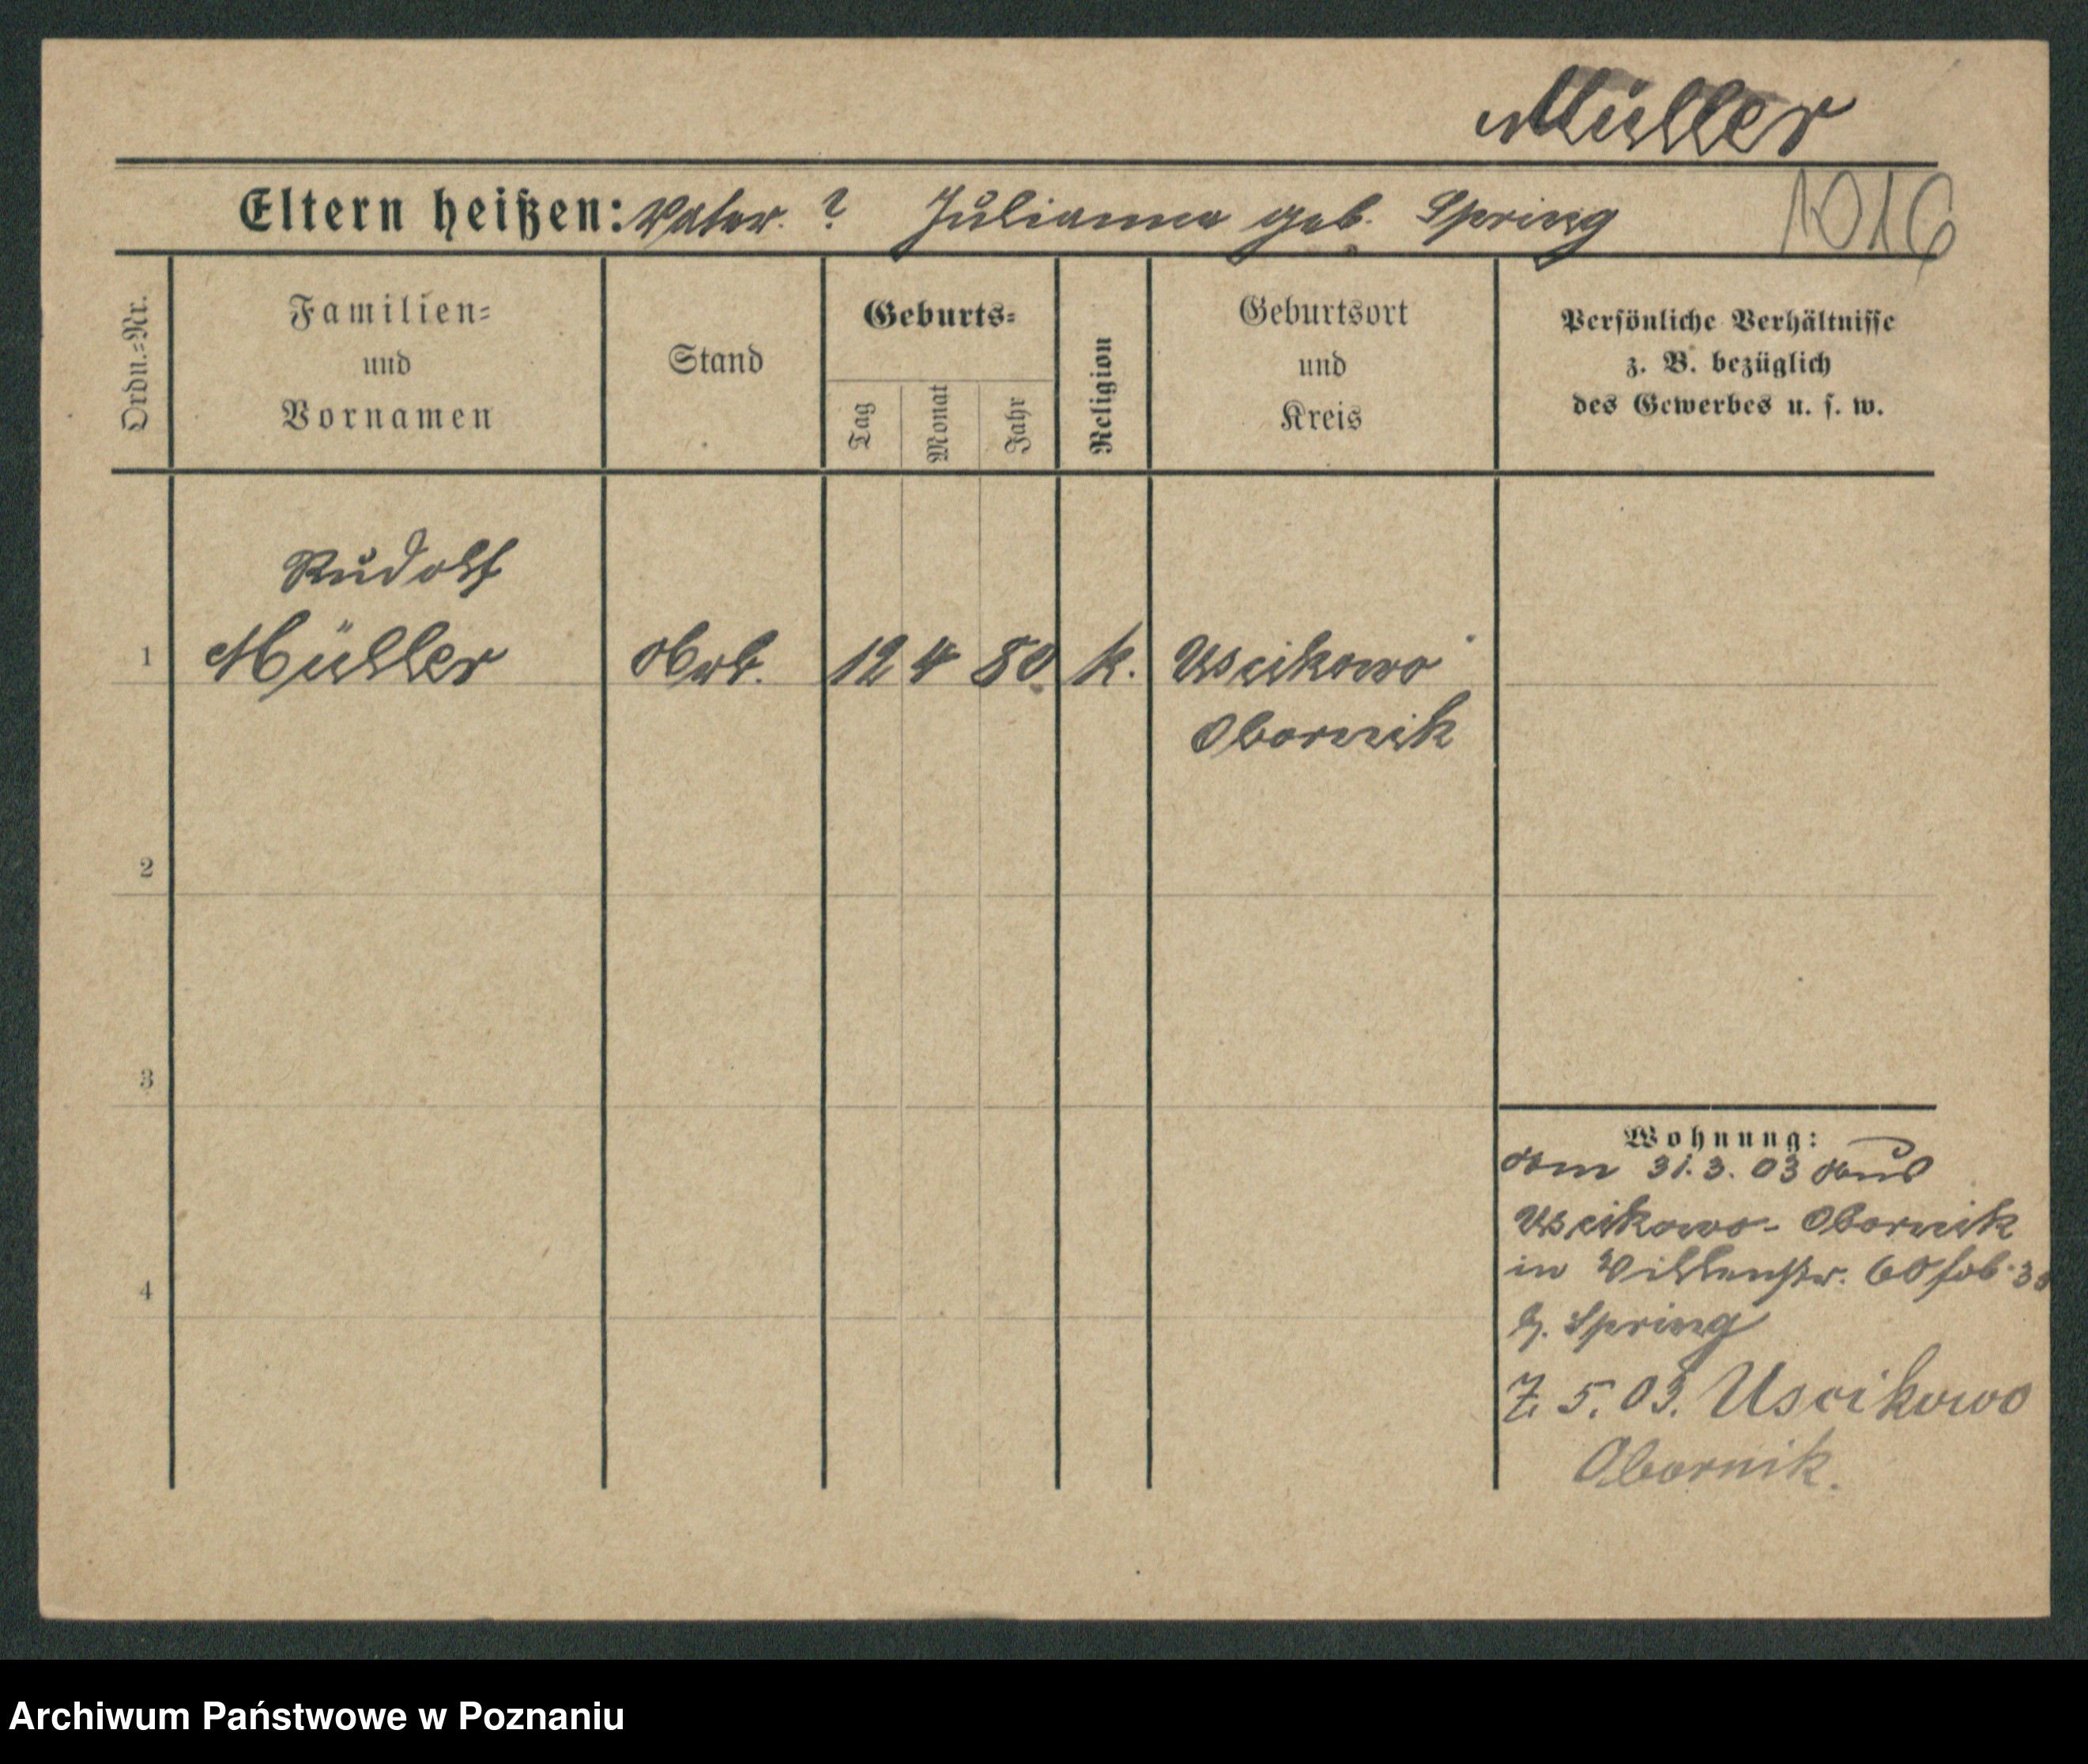 Müller
Eltern heißen: Vater ? Julianna geb. Spring 1016
Ordn.=Nr.
Familien=
und
Vornamen
Stand
Geburts=
Tag
Monat
Jahr
Religion
Geburtsort
und
Kreis
Persönliche Verhältnisse
z. B. bezüglich
des Gewerbes u. s. w.
Rudolf
1 Müller Arb. 12 4 80 k. Uscikowo
Obornik
2
3
4
Wohnung:
Am 31.3.03 aus
Uscikowo - Obornik
in 60
b. Spring
7. 5. 03. Uscikowo
Obornik.
Archiwum Państwowe w Poznaniu